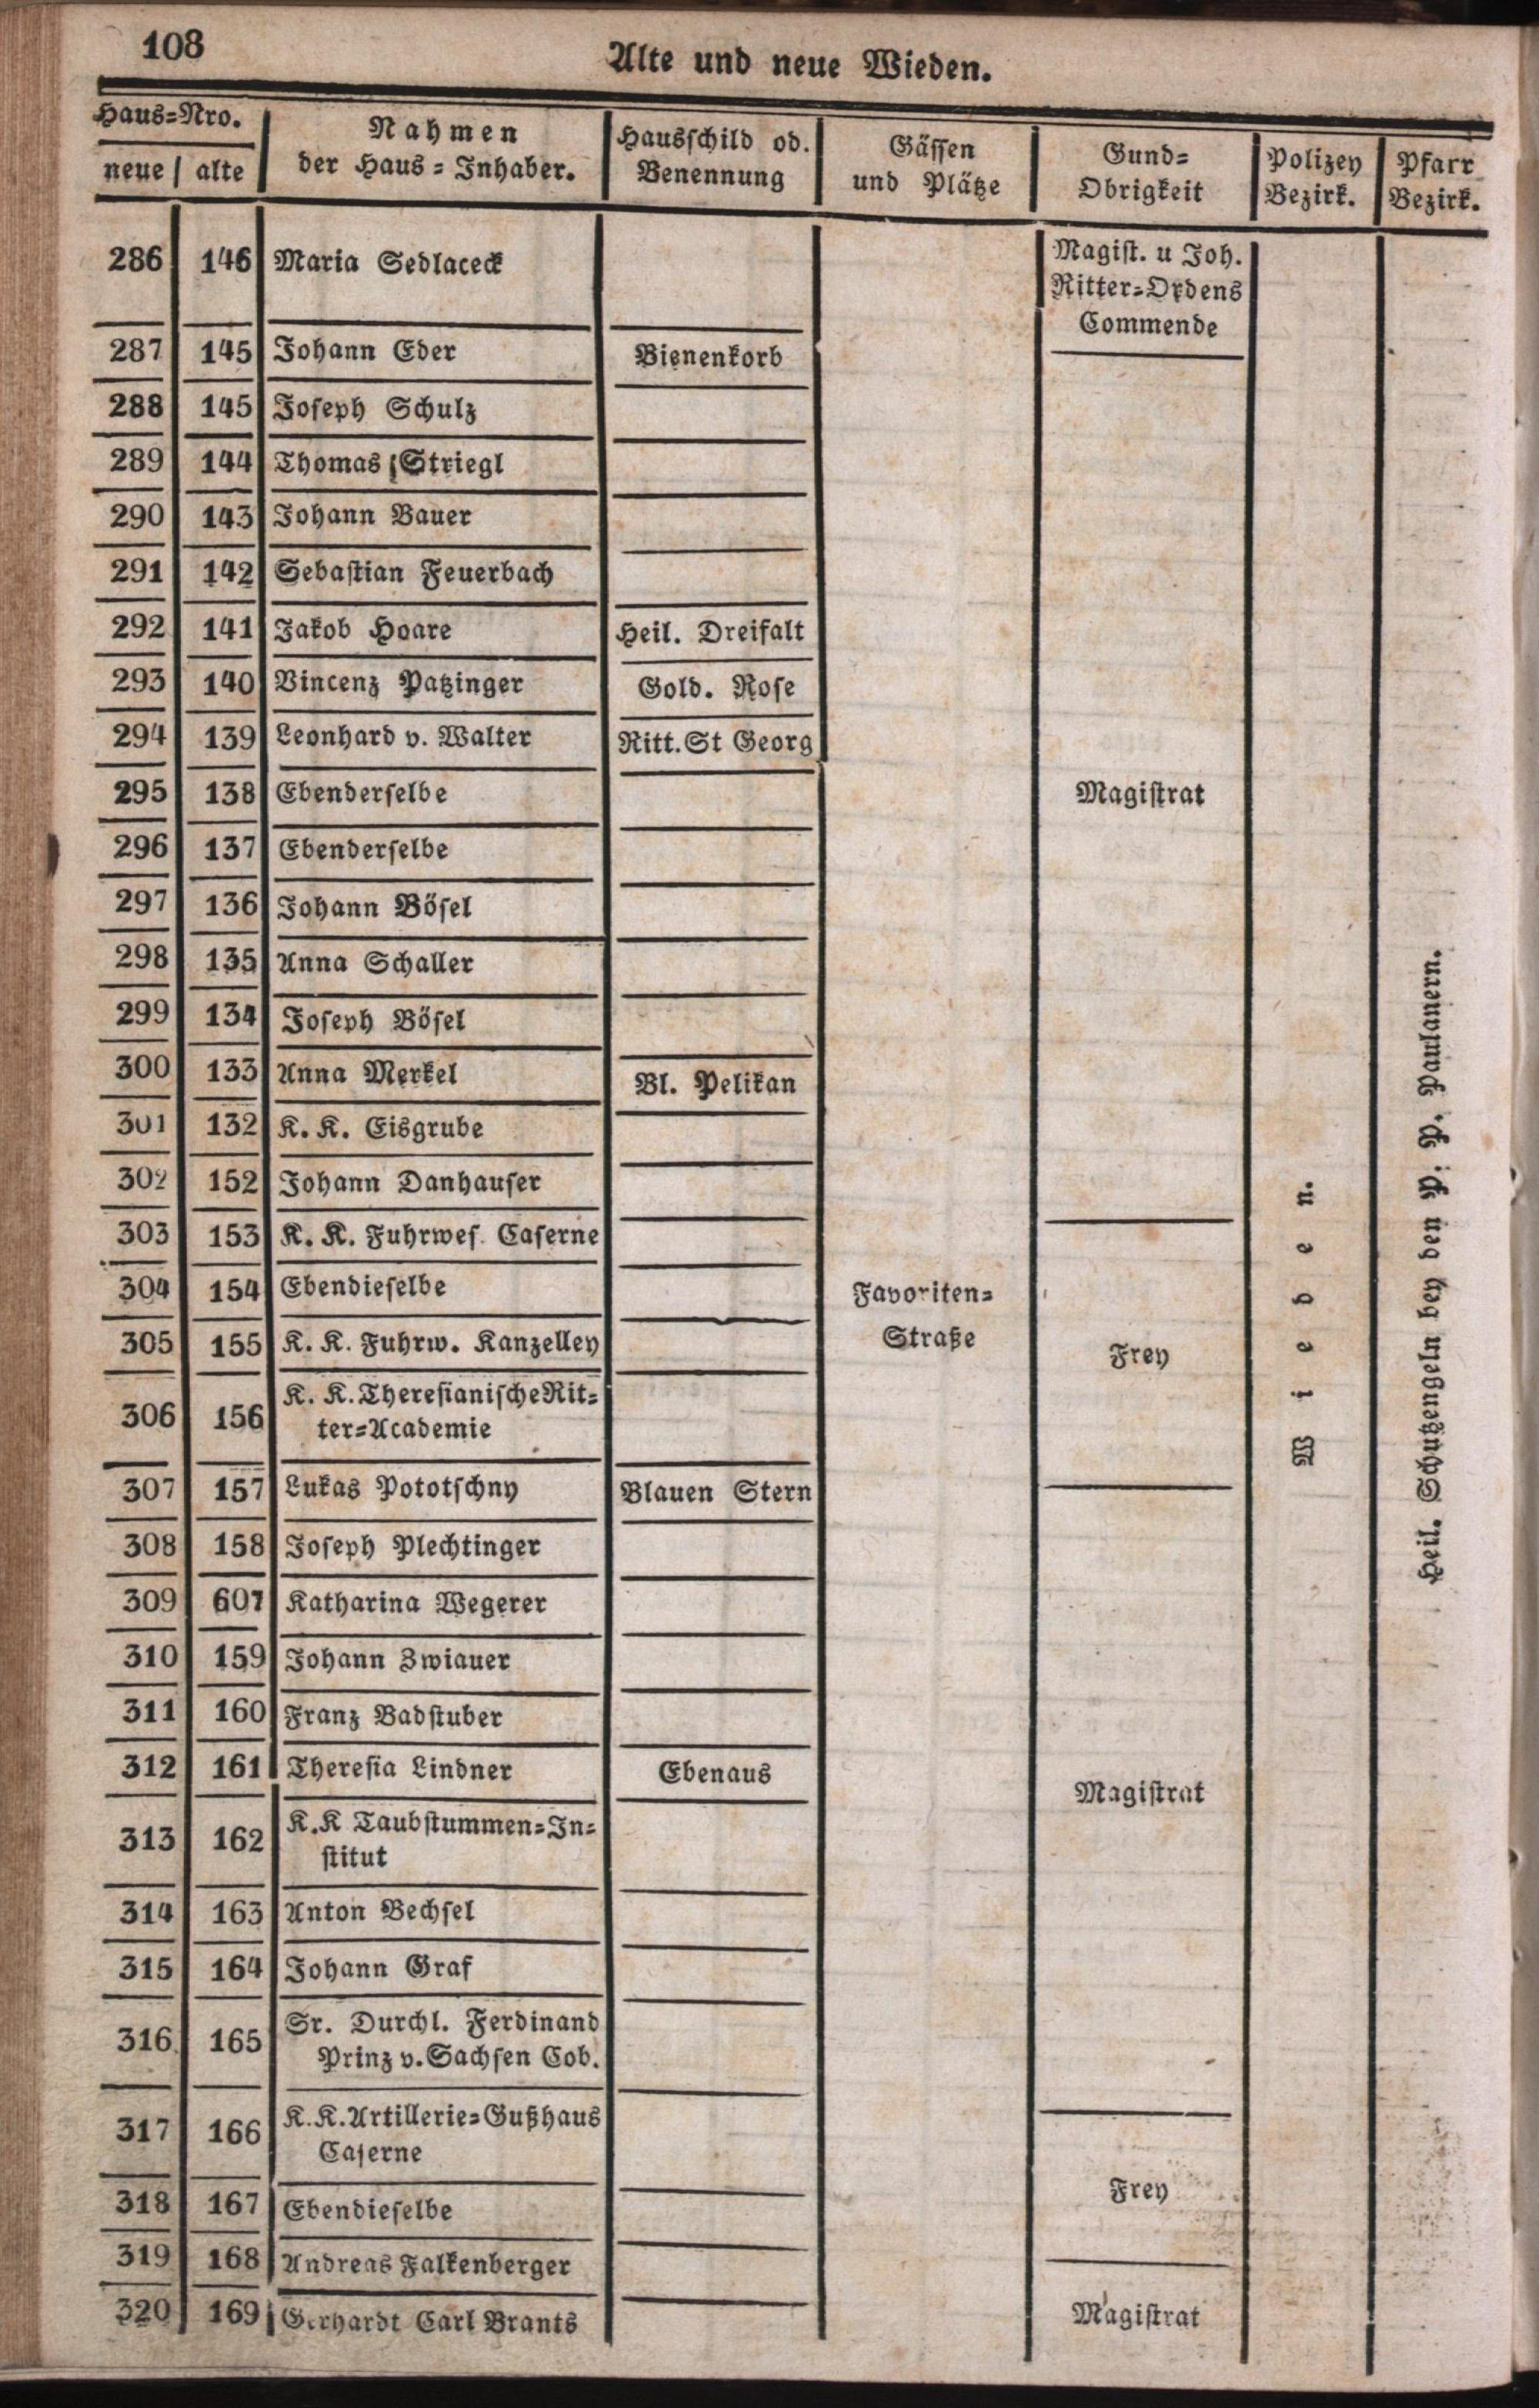 108
Alte und neue Wieden.
Haus=Nro. Nahmen Hausschild od. Gässen Gund= Polizey Pfarr
neue alte der Haus=Inhaber. Benennung und Plätze Obrigkeit Bezirk. Bezirk.
286 146 Maria Sedlaceck Magist. u Joh.
Ritter=Ordens
Commende
287 145 Johann Eder Bienenkorb
288 145 Joseph Schulz
289 144 Thomas Striegl
290 143 Johann Bauer
291 142 Sebastian Feuerbach
292 141 Jakob Hoare Heil. Dreifalt
293 140 Vincenz Patzinger Gold. Rose
294 139 Leonhard v. Walter Ritt. St Georg
295 138 Ebenderselbe Magistrat
296 137 Ebenderselbe
297 136 Johann Bösel
298 135 Anna Schaller
299 134 Joseph Bösel
300 133 Anna Merkel Bl. Pelikan
301 132 K. K. Eisgrube
302 152 Johann Danhauser
303 153 K. K. Fuhrwes. Caserne
304 154 Ebendieselbe Favoriten=
305 155 K. K. Fuhrw. Kanzelley Straße Frey
306 156 K. K. Theresianische Rit=
ter=Academie
307 157 Lukas Pototschny Blauen Stern
308 158 Joseph Plechtinger
309 607 Katharina Wegerer
310 159 Johann Zwiauer
311 160 Franz Badstuber
312 161 Theresia Lindner Ebenaus Magistrat
313 162 K.K Taubstummen=In=
stitut
314 163 Anton Bechsel
315 164 Johann Graf
316 165 Sr. Durchl. Ferdinand
Prinz v. Sachsen Cob.
317 166 K. K. Artillerie=Gußhaus
Caserne
318 167 Ebendieselbe Frey
319 168 Andreas Falkenberger
320 169 Gerhardt Carl Brants Magistrat
Wieden.
Heil. Schutzengeln bey den P. P. Paulanern.